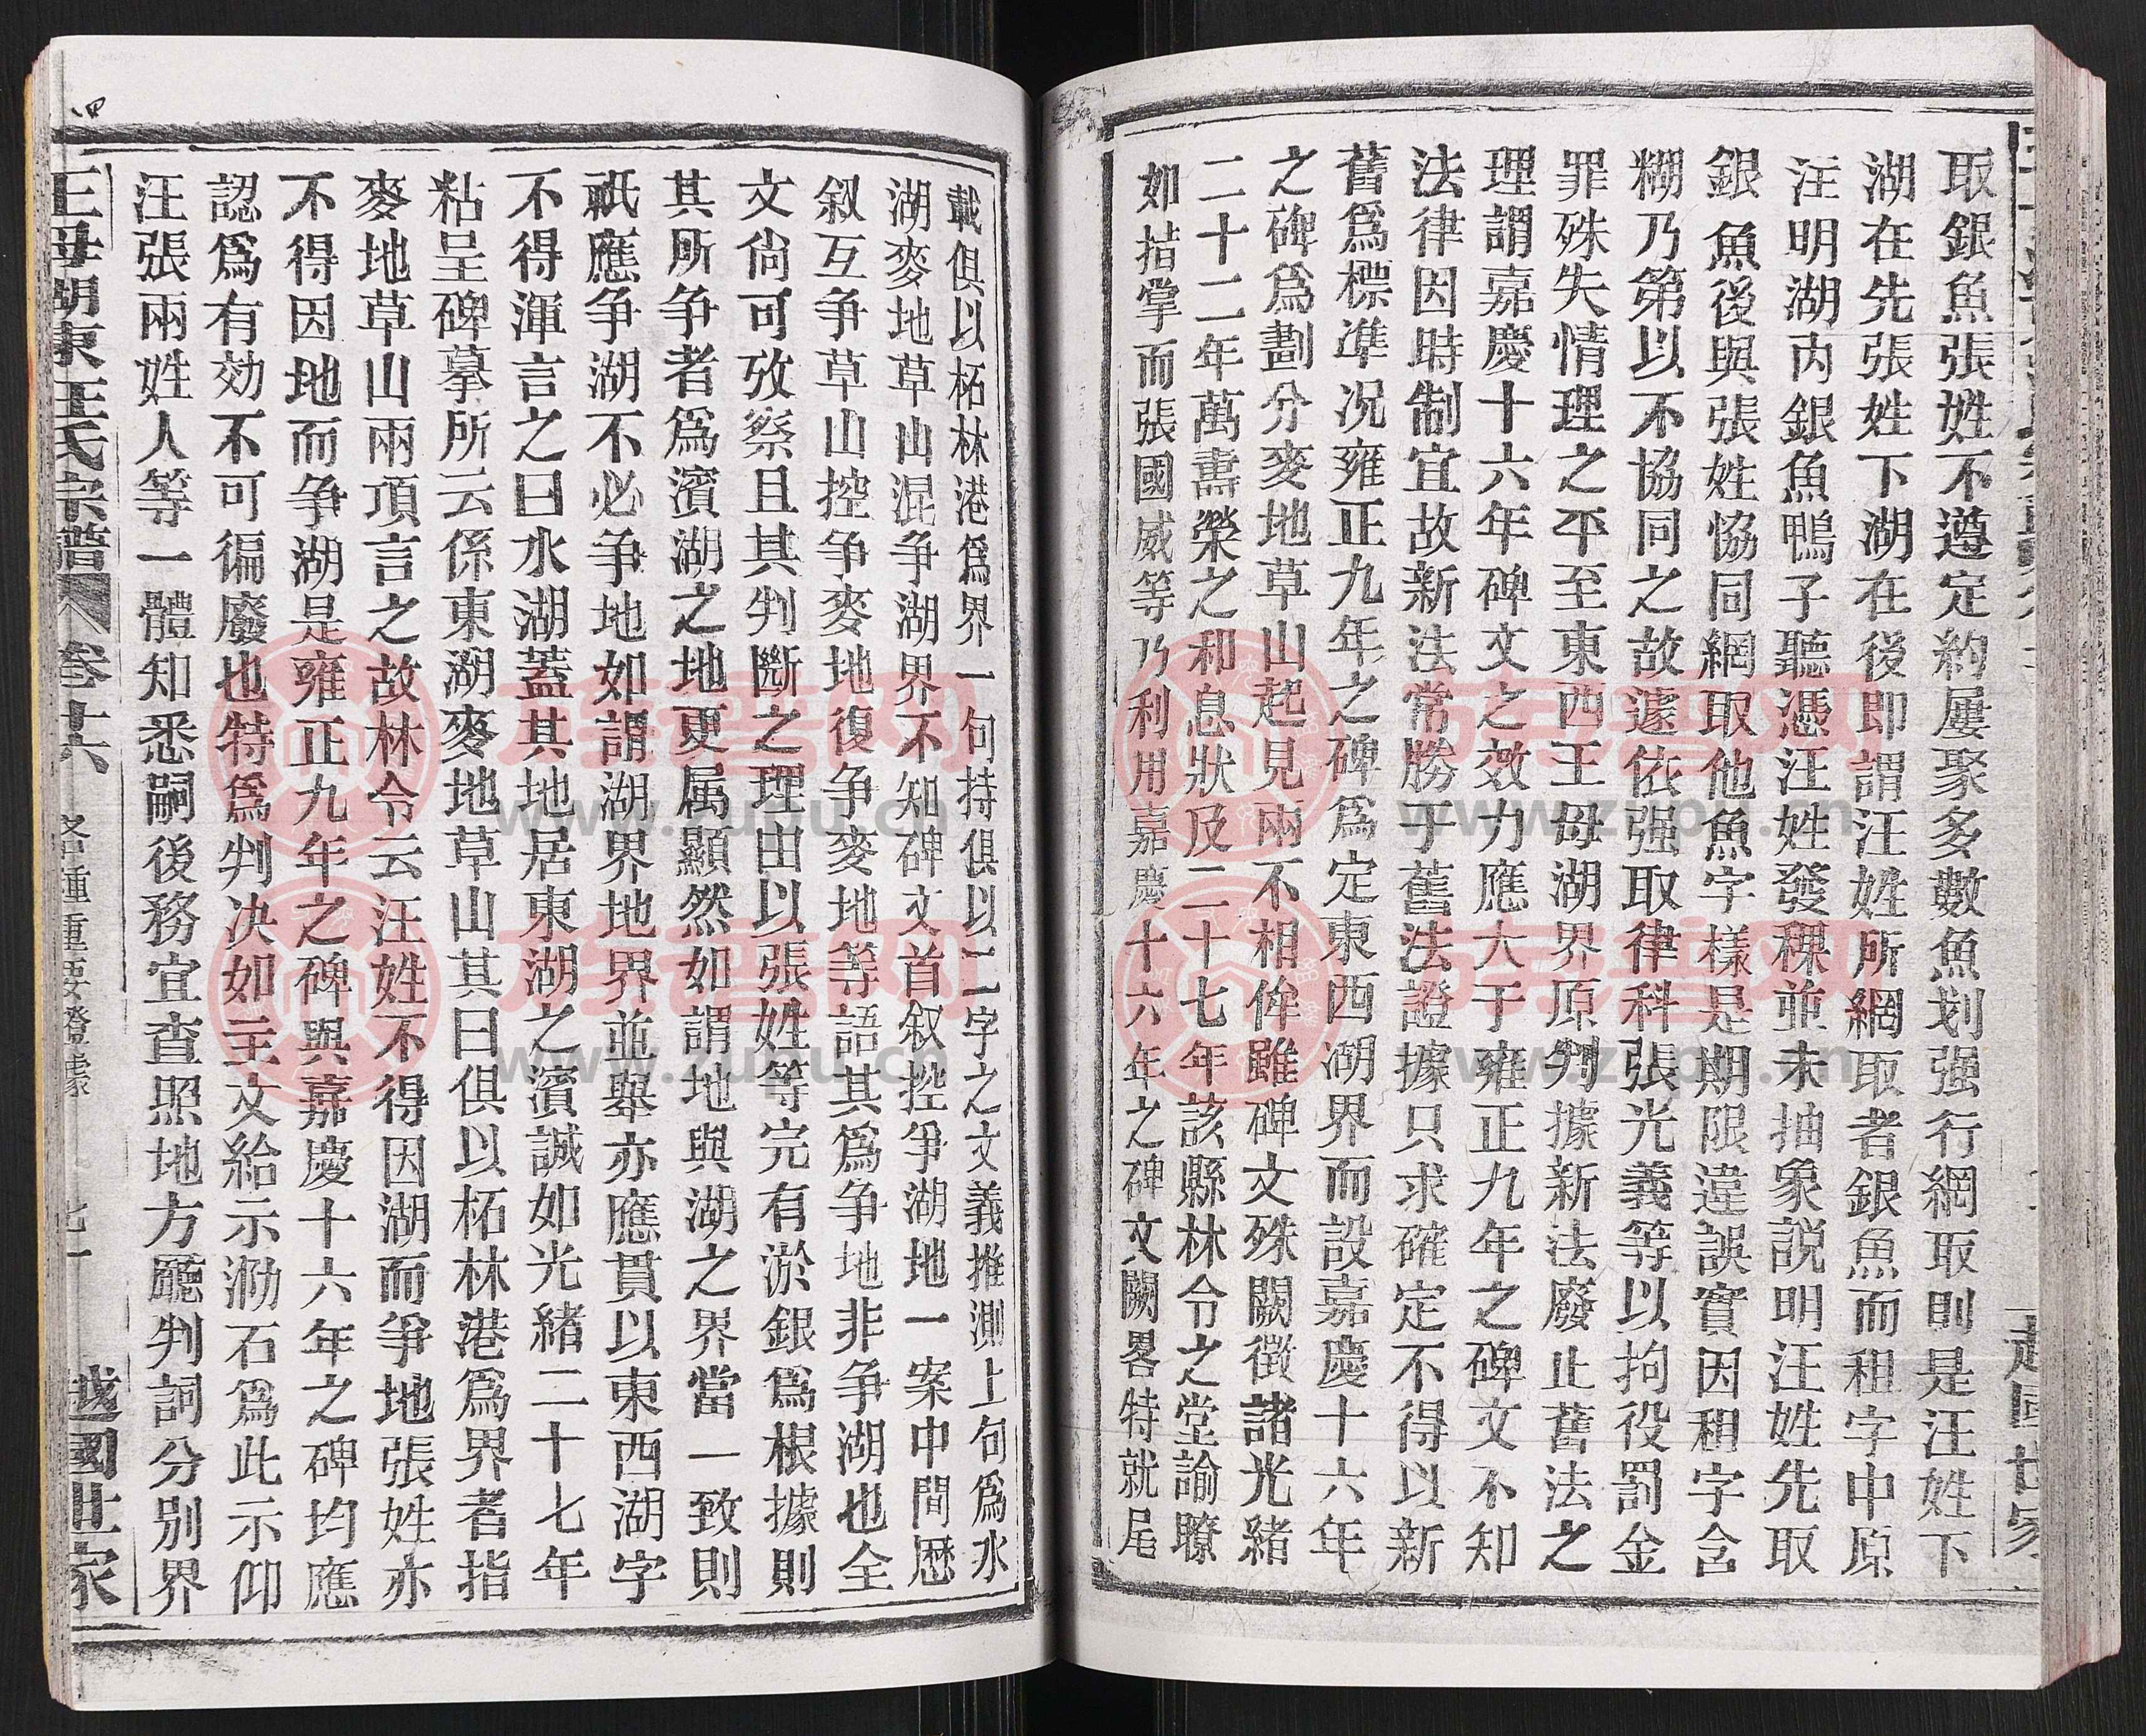 取銀魚張姓不遵定約屢聚多數魚划强行網取則是汪姓下
湖在先張姓下湖在後即謂汪姓所網取者銀魚而租字中原
注明湖内銀魚鴨子聽憑汪姓發稞並未抽象説明汪姓先取
銀魚後與張姓恊同網取他魚字樣是期限違誤實因租字含
糊乃第以不協同之故遽依强取律科張光義等以拘役罰金
罪殊失情理之平至東西王母湖界原判據新法廢止舊法之
理謂嘉慶十六年碑文之效力應大于雍正九年之碑文不知
法律因時制宜故新法常勝于舊法證據只求確定不得以新
舊爲標準况雍正九年之碑爲定東西湖界而設嘉慶十六年
之碑爲劃分麥地草山起見兩不相侔雖碑文殊闕徵諸光緒
二十二年萬燾榮之和息狀及二十七年該縣林令之堂諭瞭
如指掌而張國威等乃利用嘉慶十六年之碑文闕畧特就尾
載俱以柘林港爲界一句持俱以二字之文義推測上句爲水
湖麥地草山混争湖界不知碑文首叙控爭湖地一案中間歷
叙互争草山控争麥地復争麥地等語其爲争地非争湖也全
文尙可攷察且其判斷之理由以張姓等完有淤銀爲根據則
其所争者爲濱湖之地更属顯然如謂地與湖之界當一致則
祇應争湖不必争地如謂湖界地界並舉亦應貫以東西湖字
不得渾言之曰水湖蓋其地居東湖之濱誠如光緒二十七年
粘呈碑摹所云係東湖麥地草山其曰俱以柘林港爲界者指
麥地草山兩項言之故林令云汪姓不得因湖而爭地張姓亦
不得因地而争湖是雍正九年之碑與嘉慶十六年之碑均應
認爲有効不可徧廢也特爲判决如主文給示泐石爲此示仰
汪張兩姓人等一體知悉嗣後務宜查照地方廳判詞分别界
王母湖東汪氏宗譜 卷十六 各種重要證據 七一 越國世家
族譜网
www.zupu.cn